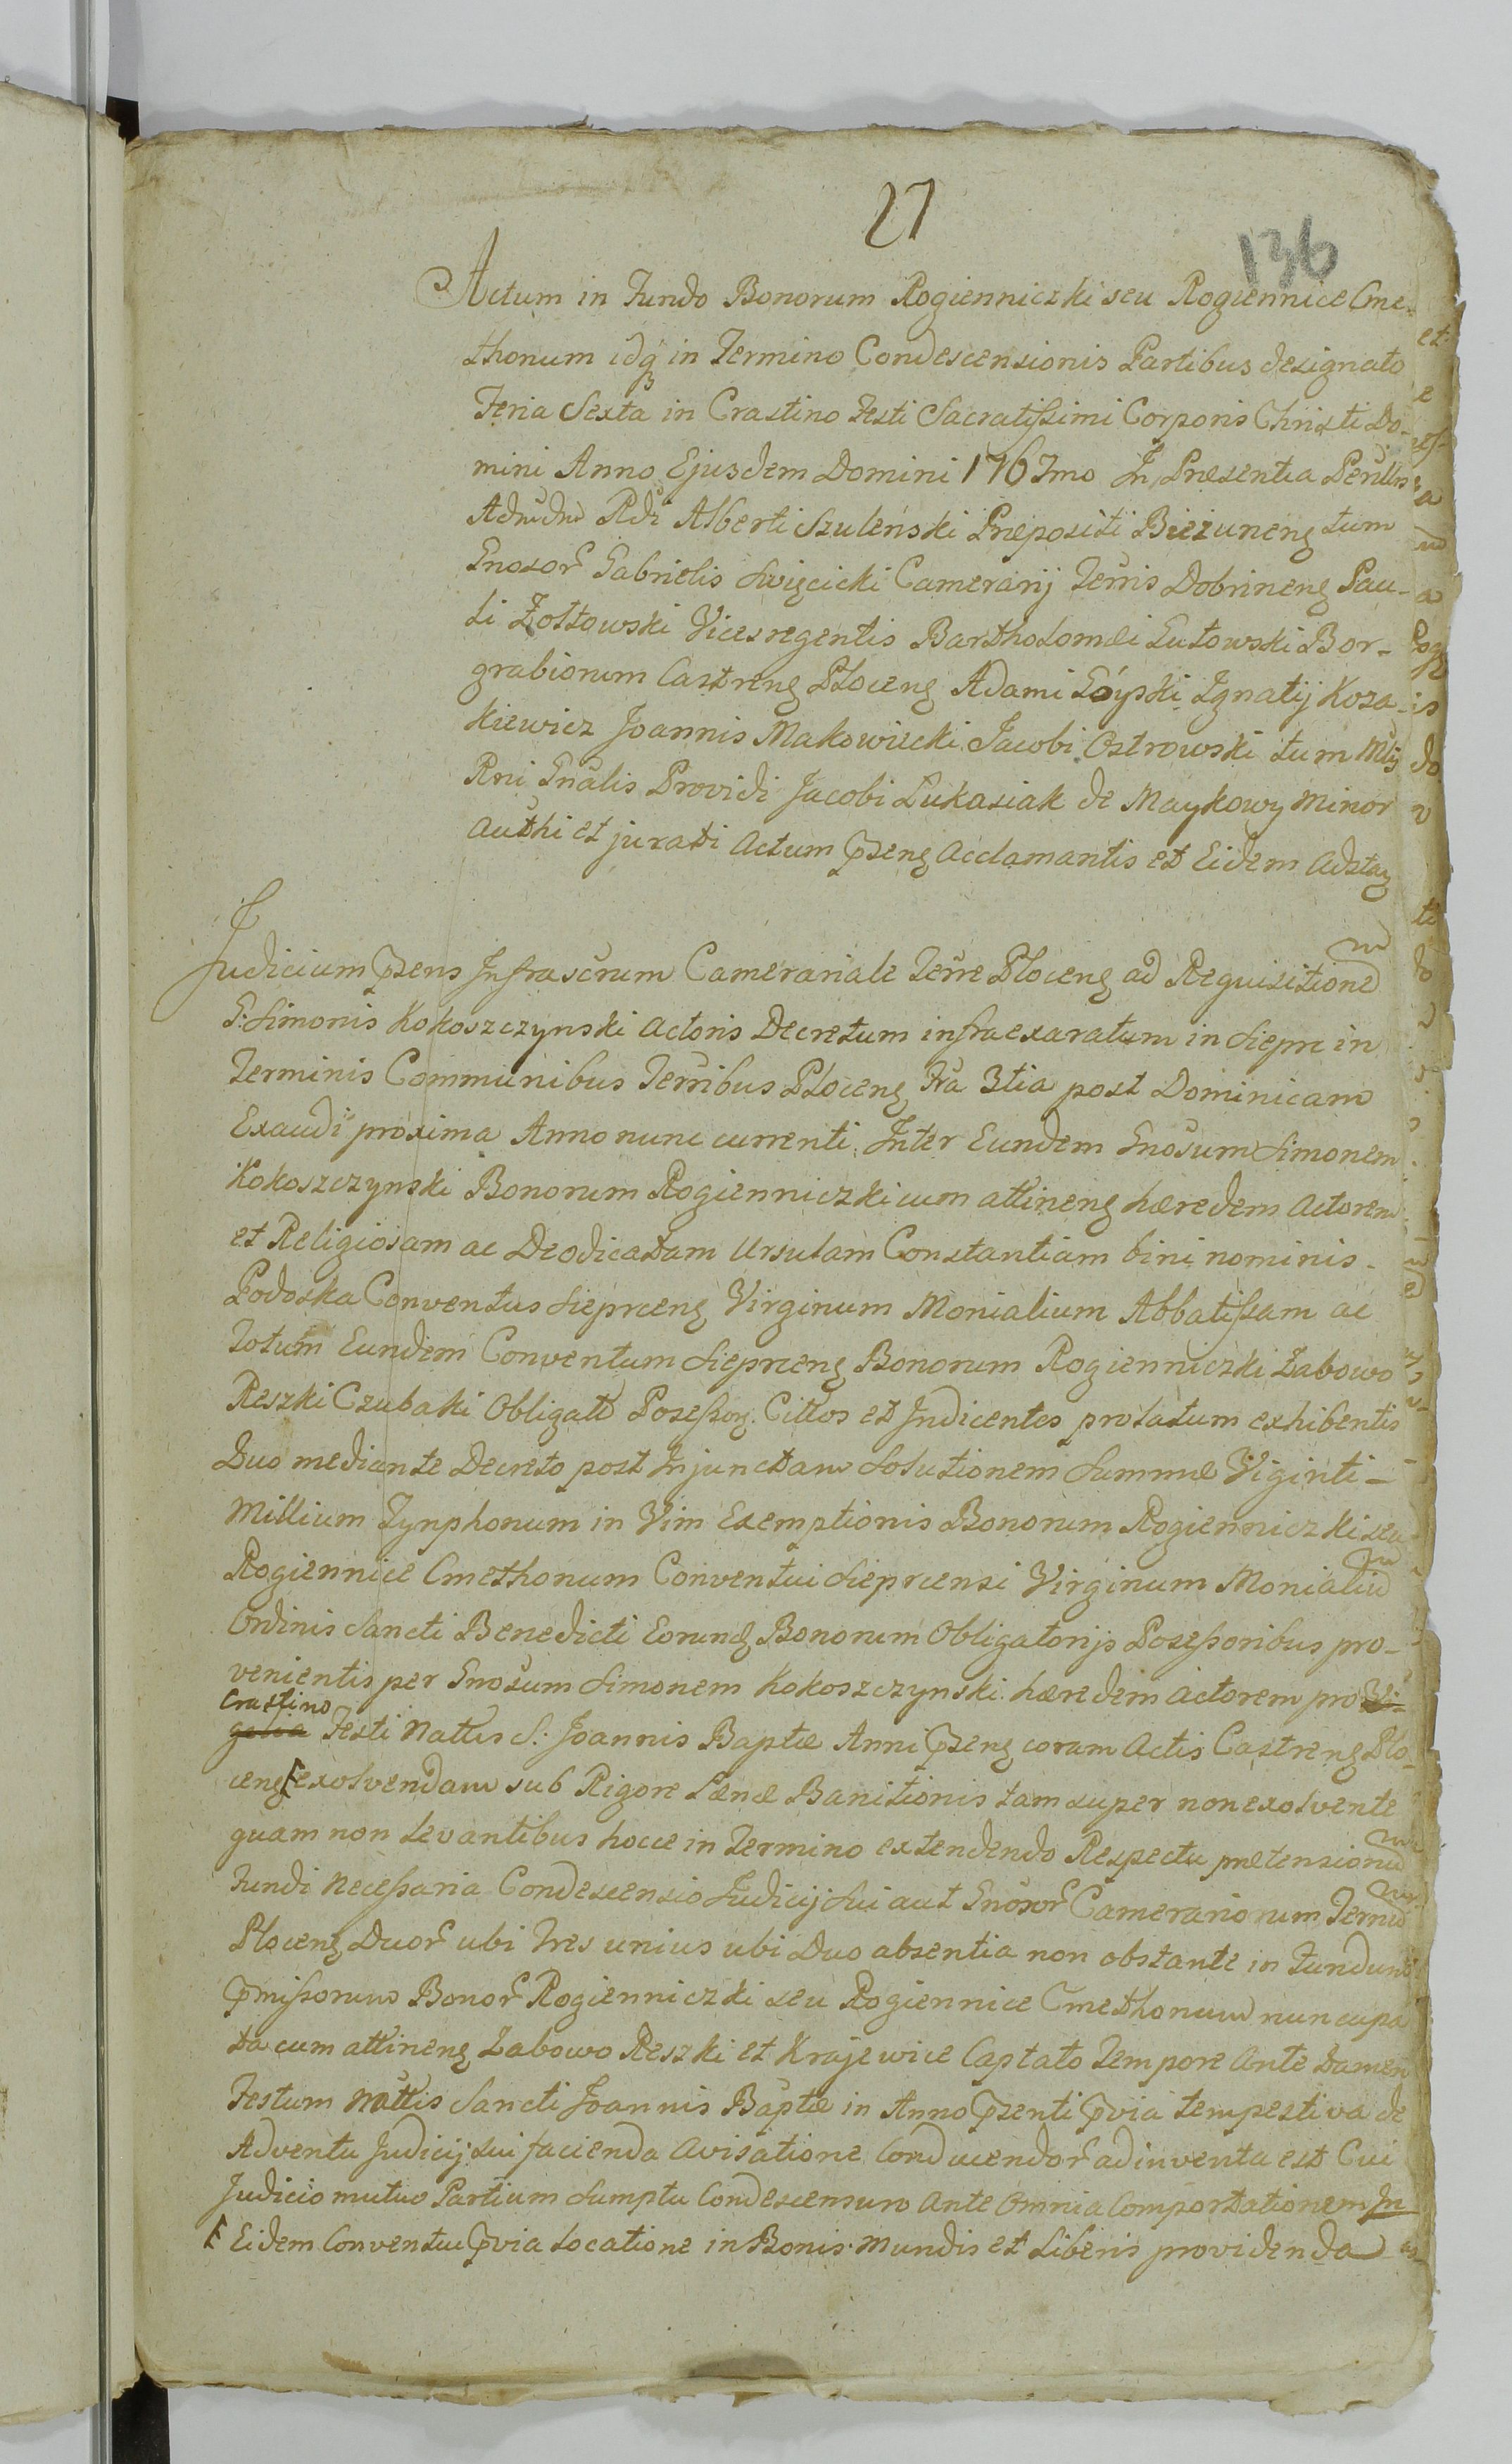 27
136
Actum in Fundo Bonorum Rogienniczki seu Rogiennice Cme-
thonum idq in Termino Condescensionis Partibus designato
Feria Sexta in Crastino Festi Sacratissimi Corporis Christi Do-
mini Anno Ejusdem Domini 1767mo In Præsentia Perillris
Admdm Rdi Alberti Szuleński Præpositi Bieżunens tum
Gnosor Gabrielis Swięcicki Camerarij Terris Dobrinens Pau-
li Żołtowski Vicesregentis Bartholomæi Gutowski Bor-
grabiorum Castrens Plocens Adami Góyski Ignatij Koza-
kiewicz Joannis Makowiecki Jacobi Ostrowski tum Mtis
Rni Gnalis Providi Jacobi Lukasiak de Maykowy minor
authi et jurati Actum psens acclamantis et Eidem Adstan
Judicium psens Infrascrum Camerariale Terre Plocens ad Requisitionem
G. Simonis Kokoszczynski Actoris Decretum infraexaratum in Siepre in
Terminis Communibus Terribus Plocens Fra 3tia post Dominicam
Exaudi proxima Anno nunc currenti Inter Eundem Gnosum Simonem
Kokoszczynski Bonorum Rogienniczki cum attinens hæredem Actorem
et Religiosam ac Deodicatam Ursulam Constantiam bini nominis
Podoska Conventus Sieprcens Virginum Monialium Abbatissam ac
Totum Eundem Conventum Sieprcens Bonorum Rogienniczki Żabowo
Reszki Czubaki Obligatt Possessors Cittos et Indicentes prolatum exhibentis
Quo mediante Decreto post Injunctam Solutionem Summæ Viginti
Millium Tynphonum in Vim Exemptionis Bonorum Rogienniczki seu
Rogiennice Cmethonum Conventui Sieprcensi Virginum Monialium
Ordinis Sancti Benedicti Eorund Bonorum Obligatorijs Possessoribus pro-
venientis per Gnosum Simonem Kokoszczynski hæredem actorem pro Vi-
Crastino
gilia Festi Nattis S: Joannis Baptæ Anni psens coram Actis Castrens Plo-
cens exolvendam sub Rigore Pænæ Banitionis tam super non exolvente
quam non levantibus hocce in Termino extendendo Respectu prætensionum
Fundi necessaria Condescensio Judicij Sui aut Gnosor Camerariorum Terrium
Plocens Duor ubi Tres unius ubi Duo absentia non obstante in Fundum
pmissorum Bonor Rogienniczki seu Rogiennice Cmethonum nuncupa
ta cum attinens Żabowo Reszki et Krajewice Captato Tempore Ante tamen
Festum Nattis Sancti Joannis Baptæ in Anno psenti pvia tempestiva de
Adventu Judicij sui facienda avisatione Conducendor adinventa est Cui
Judicio mutuo Partium Sumptu Condescensuro Ante Omnia Comportationem In
Eidem Conventui pvia locatione in Bonis mundis et Liberis providenda